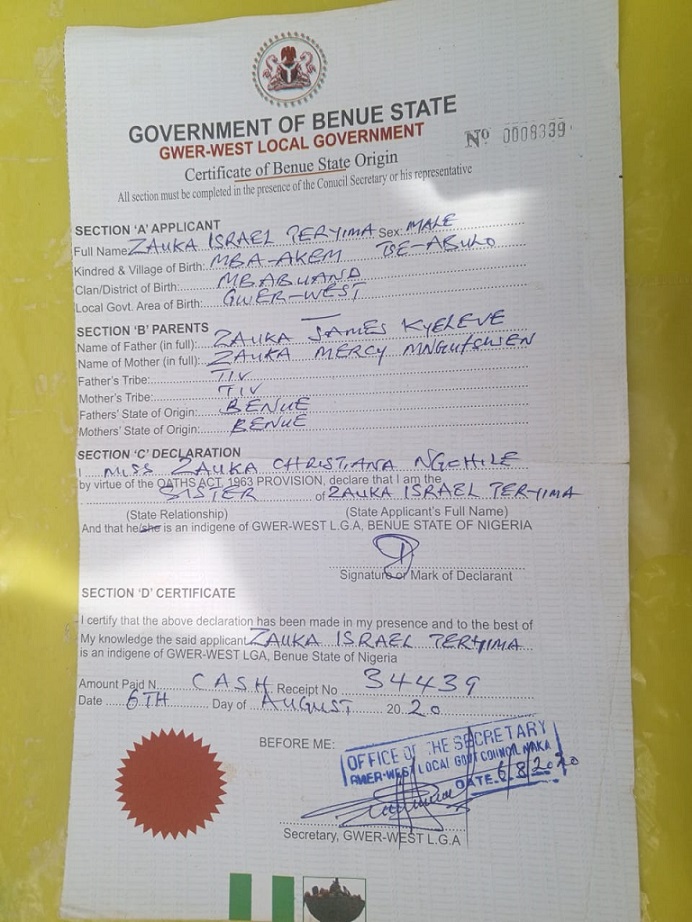 GOVERNMENT OF BENUE STATE
GWER-WEST LOCAL GOVERNMENT
Nº 0008339
Certificate of Benue State Origin
All section must be completed in the presence of the Conucil Secretary or his representative
SECTION 'A' APPLICANT
Full Name: ZAUKA ISRAEL TERYIMA Sex: MALE
Kindred & Village of Birth: MBA-AKEM TSE-ABUKO
Clan/District of Birth:
Local Govt. Area of Birth: GWER-WEST
SECTION 'B' PARENTS
Name of Father (in full): ZAUKA JAMES KYELEVE
Name of Mother (in full): ZAUKA MERCY
Father's Tribe: TIV
Mother's Tribe: TIV
Fathers' State of Origin: BENUE
Mothers' State of Origin: BENUE
SECTION 'C' DECLARATION
I MISS ZAUKA CHRISTIANA NGOHILE
by virtue of the OATHS ACT, 1963 PROVISION, declare that I am the
SISTER of ZAUKA ISRAEL TERYIMA
(State Relationship) (State Applicant's Full Name)
And that he/she is an indigene of GWER-WEST L.G.A, BENUE STATE OF NIGERIA
Signature or Mark of Declarant
SECTION 'D' CERTIFICATE
I certify that the above declaration has been made in my presence and to the best of
My knowledge the said applicant ZAUKA ISRAEL TERYIMA
is an indigene of GWER-WEST LGA, Benue State of Nigeria
Amount Paid N CASH Receipt No 34439
Date 6TH Day of AUGUST 20 20
BEFORE ME:
OFFICE OF THE SECRETARY
GWER-WEST LOCAL GOVT COUNCIL NAKA
DATE 6/8/2020
Secretary, GWER-WEST L.G.A